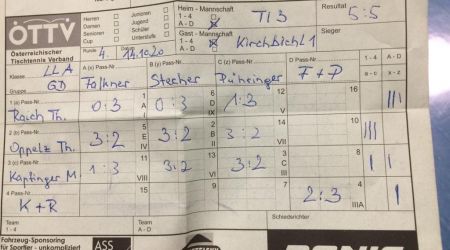 ÖTTV
Österreichischer
Tischtennis Verband
Herren
Damen
Senioren
Cup
Junioren
Jugend
Schüler
Unterstufe
Heim - Mannschaft
1 - 4
A - D
TI 3
Resultat
5:5
Gast - Mannschaft
1 - 4
A - D
Kirchbichl 1
Sieger
Runde 4. 14.10.20
Klasse LLA
Gruppe GD
A (x) Pass-Nr. Falkner
B (y) Pass-Nr. Stecher
C (z) Pass-Nr. Pühringer
D Pass-Nr. F+P
1 - 4
A - D
a - c
x - z
1 (a) Pass-Nr. Rauch Th.
0:3 1 A I
0:3 6 D IX
1:3 12 V
16
III
2 (b) Pass-Nr. Oppelz Th.
3:2 5 E IV
3:2 2 B II
3:2 14 VII
III
3 (c) Pass-Nr. Kapfinger M.
1:3 11 VIII
3:2 13 VI
3:2 3 C III
8
I
I
4 Pass-Nr. K+R
15
9
7
2:3 4 IIIA
I
Team
1 - 4
Team
A - D
Schiedsrichter
Fahrzeug-Sponsoring
für Sportler - unkompliziert
ASS
DONIC